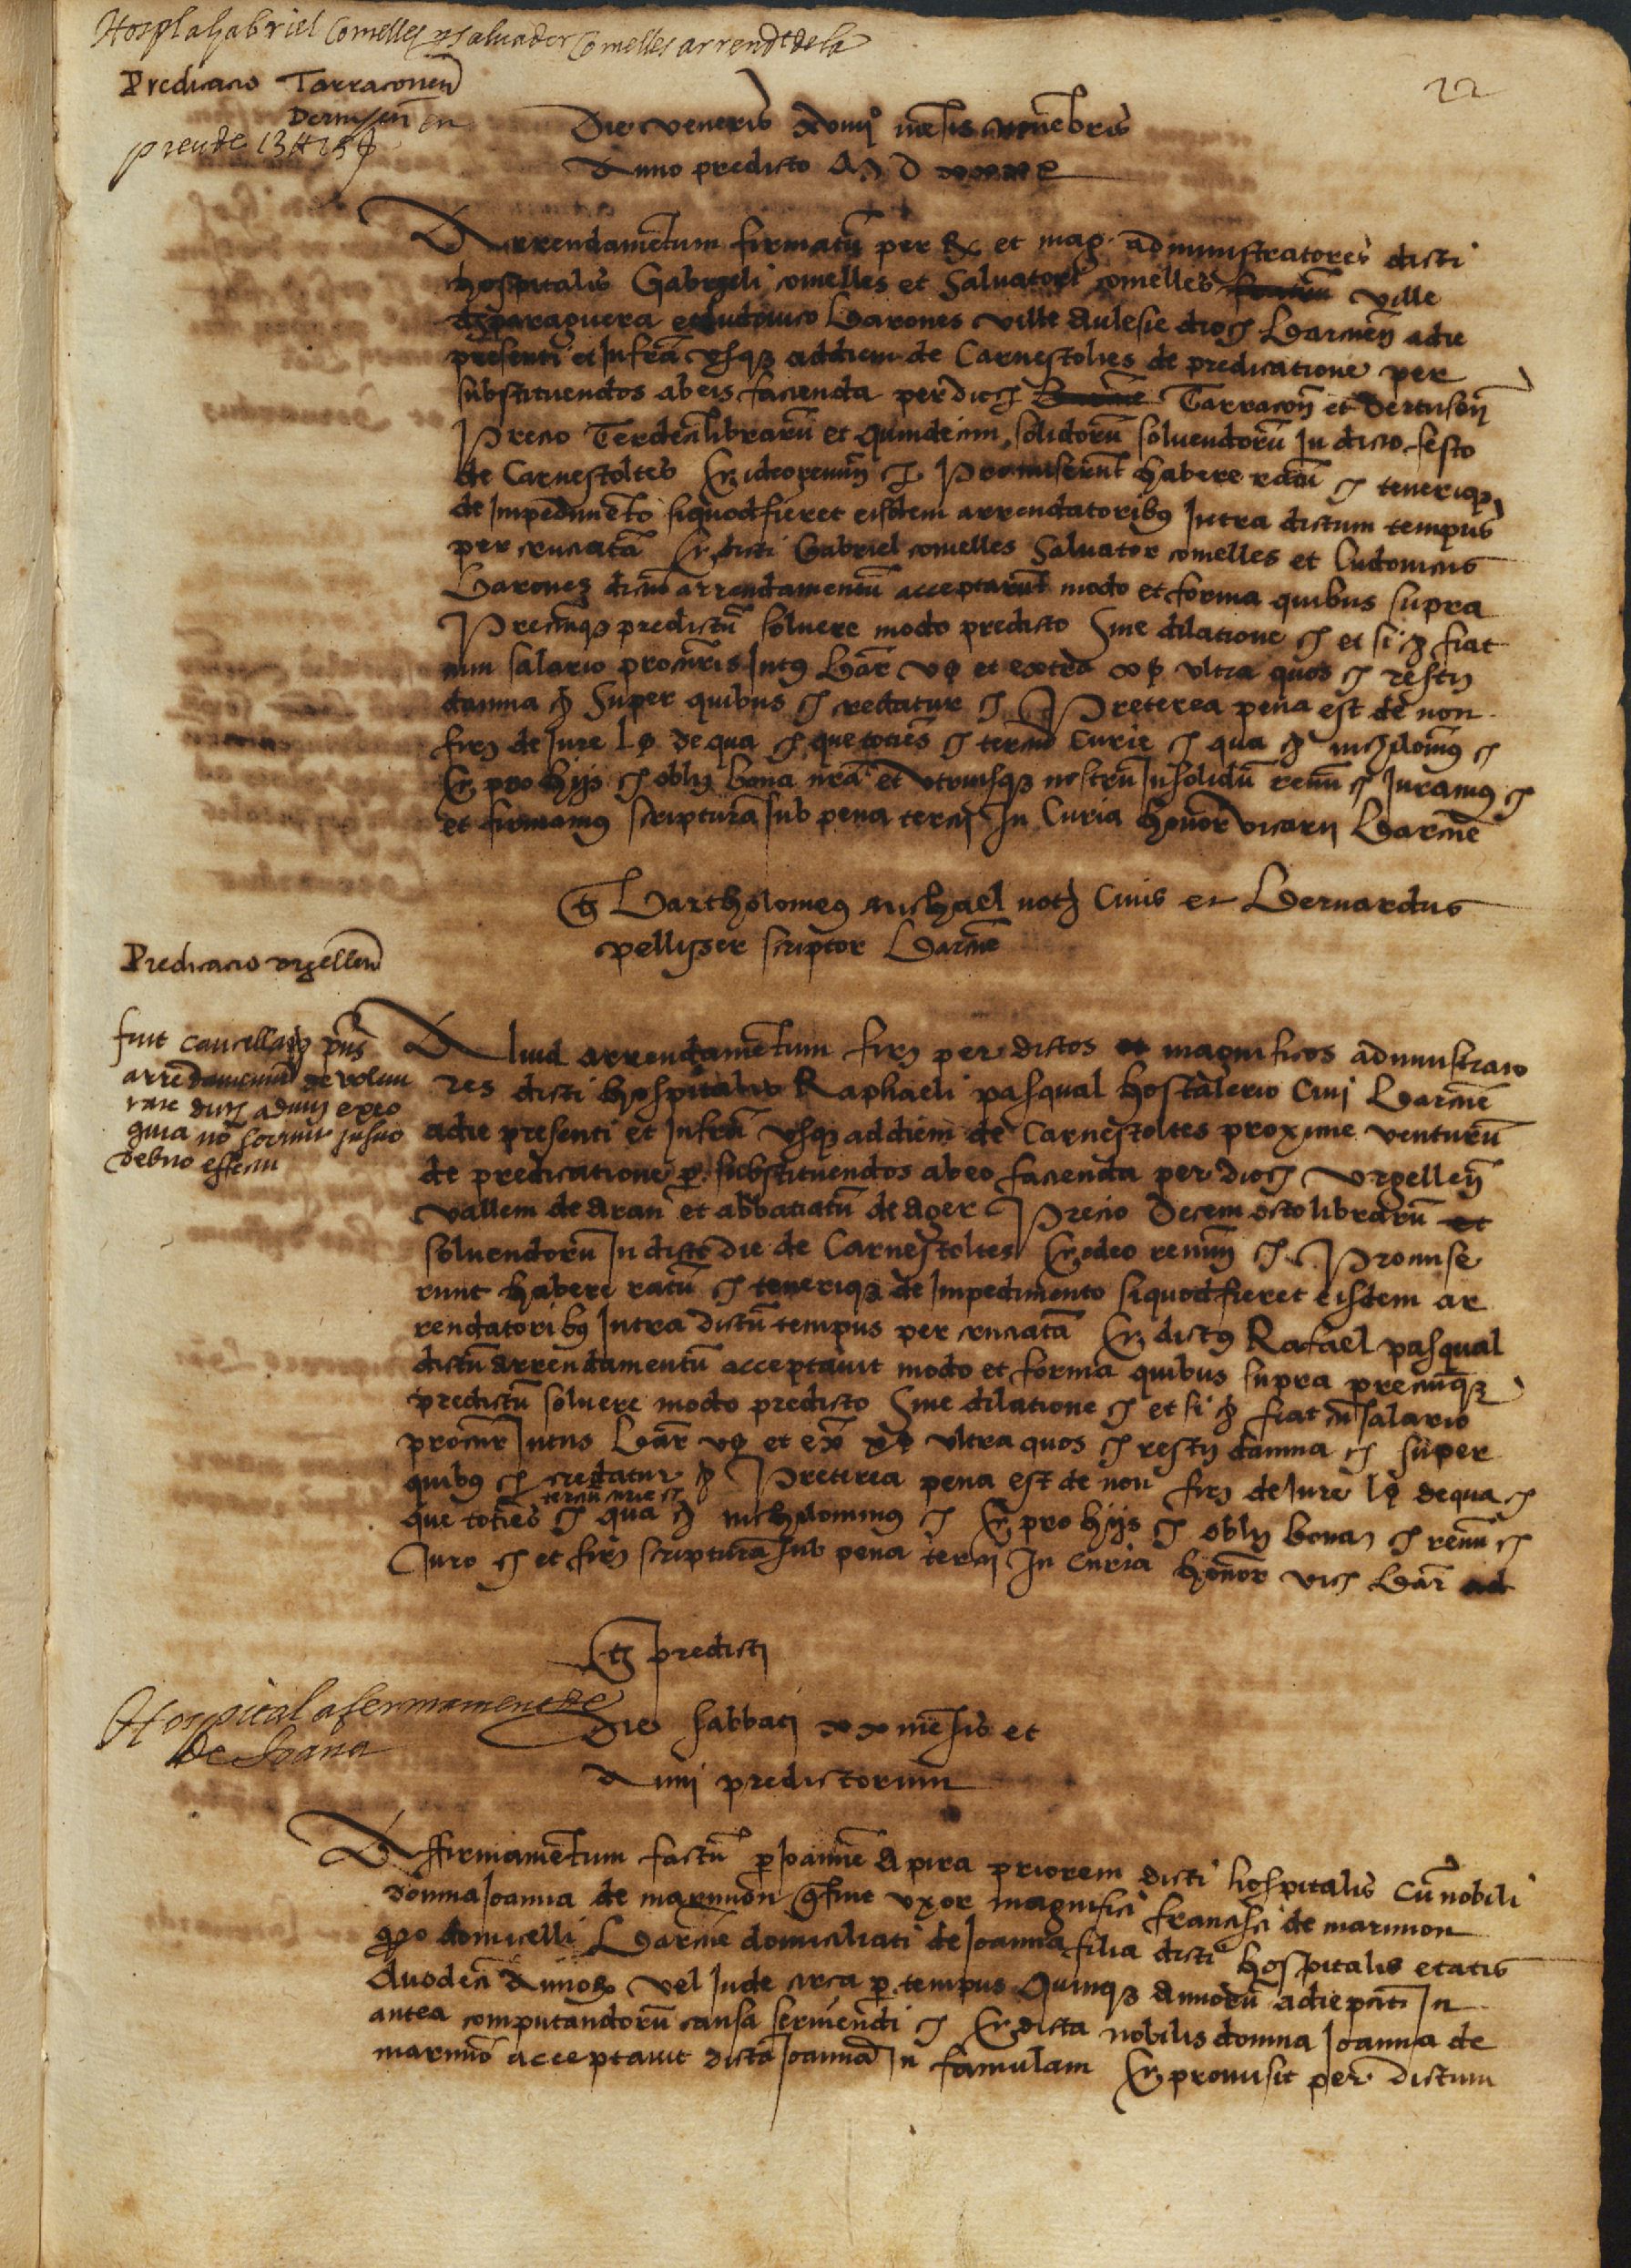 Hospl a gabriel Comelles y saluador Comelles arrendt de la
Predicacio Tarraconen
Dertusen en
preu de 13 # 15 ß
22
Die veneris xviiij mesis novebris
Anno predicto M D
Arrendametum firmatu per R et mag. administratores dicti
hospitalis Gabrieli comelles et Saluatori comelles ville
desparaguera et ludovico Barones ville Aulesie dioc Barcinen adie
presenti et Infra usq addiem de Carnestoltes de predicatione per
substituendos ab eis facienda per dioc Tarracon et Dertusen
Precio Terdecim librarum et quindecim solidoru soluendoru In dicto festo
de Carnestoltes Et ideo renun c Promiserunt habere ratu c teneriq
de Impedimeto siquod fieret eisdem arrendatoribus Intra dictum tempus
per cruciata Et dicti Gabriel comelles Saluator comelles et Ludovicus
Barones dictu arrendamentu acceptarut modo et forma quibus supra
Preciumq predictu soluere modo predicto Sine dilatione c et si c fiat
cum salario procuris Intus Bar v ß et extra x ß ultra quos c resty
damna c Super quibus c credatur c Preterea pena est de non
firy de Iure l ß de qua c que toties c tercio Curie c qua c nichilominus c
Et pro hijs c obly bona nra et utriusq nostru Insolidu renu c Iuramus c
et firmamus scriptura sub pena tercij In Curia honor vicarij Barcine
Ts Bartholomeus michael not Civis et Bernardus
pellisser scriptor Barcine
Predicacio urgellen
fuit cancellatu pns
arrendamentu de volun
tate dictor admin exeo
quia no sortiuit suo
debito effectu
Aliud arrendametum firy per dictos magnificos administrato
res dicti hospitalis Raphaeli pasqual hostalerio Civi Barcine
adie presenti et Infra usq addiem de Carnestoltes proxime venturu
de predicatione p substituendos ab eo facienda per dioc Urgellen
vallem de Aran et abbatiatu de Ager Precio Decem octo libraru
soluendoru In dicto die de Carnestoltes Et ideo renun c Promise
runt habere ratu c teneriq de Impedimento siquod fieret eisdem ar
rendatoribus Intra dictu tempus per cruciata Et dictus Rafael pasqual
dictu arrendamentu acceptauit modo et forma quibus supra preciumq
predictu soluere modo predicto Sine dilatione c et si c fiat cu salario
procur Intus Bar v ß et ex x ß ultra quos c resty damna c super
quibus c credatur c Preterea pena est de non firy de Iure l ß de qua c
terciu curie c
que toties c qua c nichilominus c Et pro hijs c obly bona c renu c
Iuro c et firy scriptura sub pena tercij In Curia honor vic Bar
Ts predicti
Hospital afermament de
De Joana
Die sabbati xx mesis et
Anni predictorum
Affirmametum factu p Joanne Apira priorem dicti hospitalis cu nobili
domna Joanna de marimon uxor magnifici francisci de marimon
quo domicelli Barcine domiciliati de Joanna filia dicti hospitalis etatis
duodeci Annor vel Inde circa p tempus Quinq Annoru adie pnti In
antea computandoru causa seruiendi c Et dicta nobilis domna Joanna de
marimo acceptauit dicta Joanna In famulam Et promisit per dictum